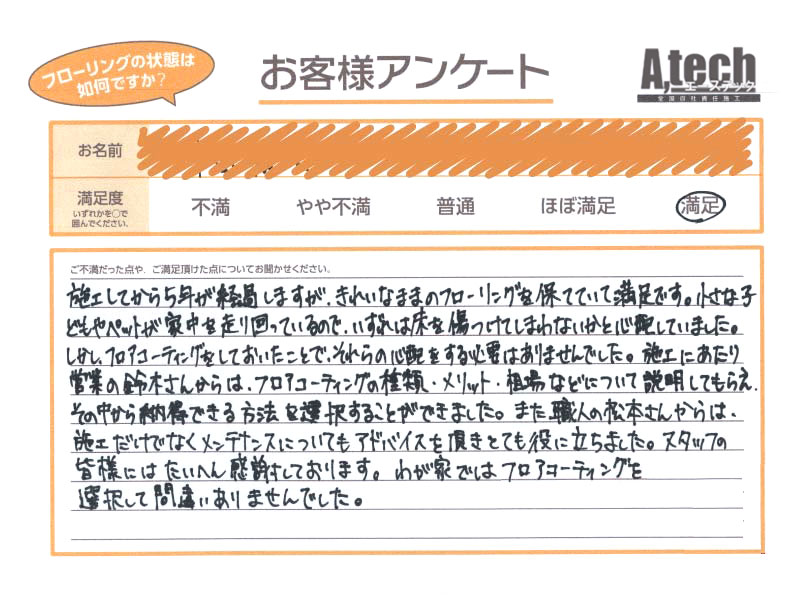 フローリングの状態は
如何ですか？
お客様アンケート
A.tech
エーステック
全国自社責任施工
お名前
満足度
いずれかを○で
囲んでください。
不満
やや不満
普通
ほぼ満足
満足
ご不満だった点や、ご満足頂けた点についてお聞かせください。
施工してから5年が経過しますが、きれいなままのフローリングを保てていて満足です。小さな子
どもやペットが家中を走り回っているので、いずれは床を傷つけてしまわないかと心配していました。
しかし、フロアコーティングをしておいたことで、それらの心配をする必要はありませんでした。施工にあたり
営業の鈴木さんからは、フロアコーティングの種類・メリット・相場などについて説明してもらえ、
その中から納得できる方法を選択することができました。また職人の松本さんからは、
施工だけでなくメンテナンスについてもアドバイスを頂きとても役に立ちました。スタッフの
皆様にはたいへん感謝しております。わが家ではフロアコーティングを
選択して間違いありませんでした。